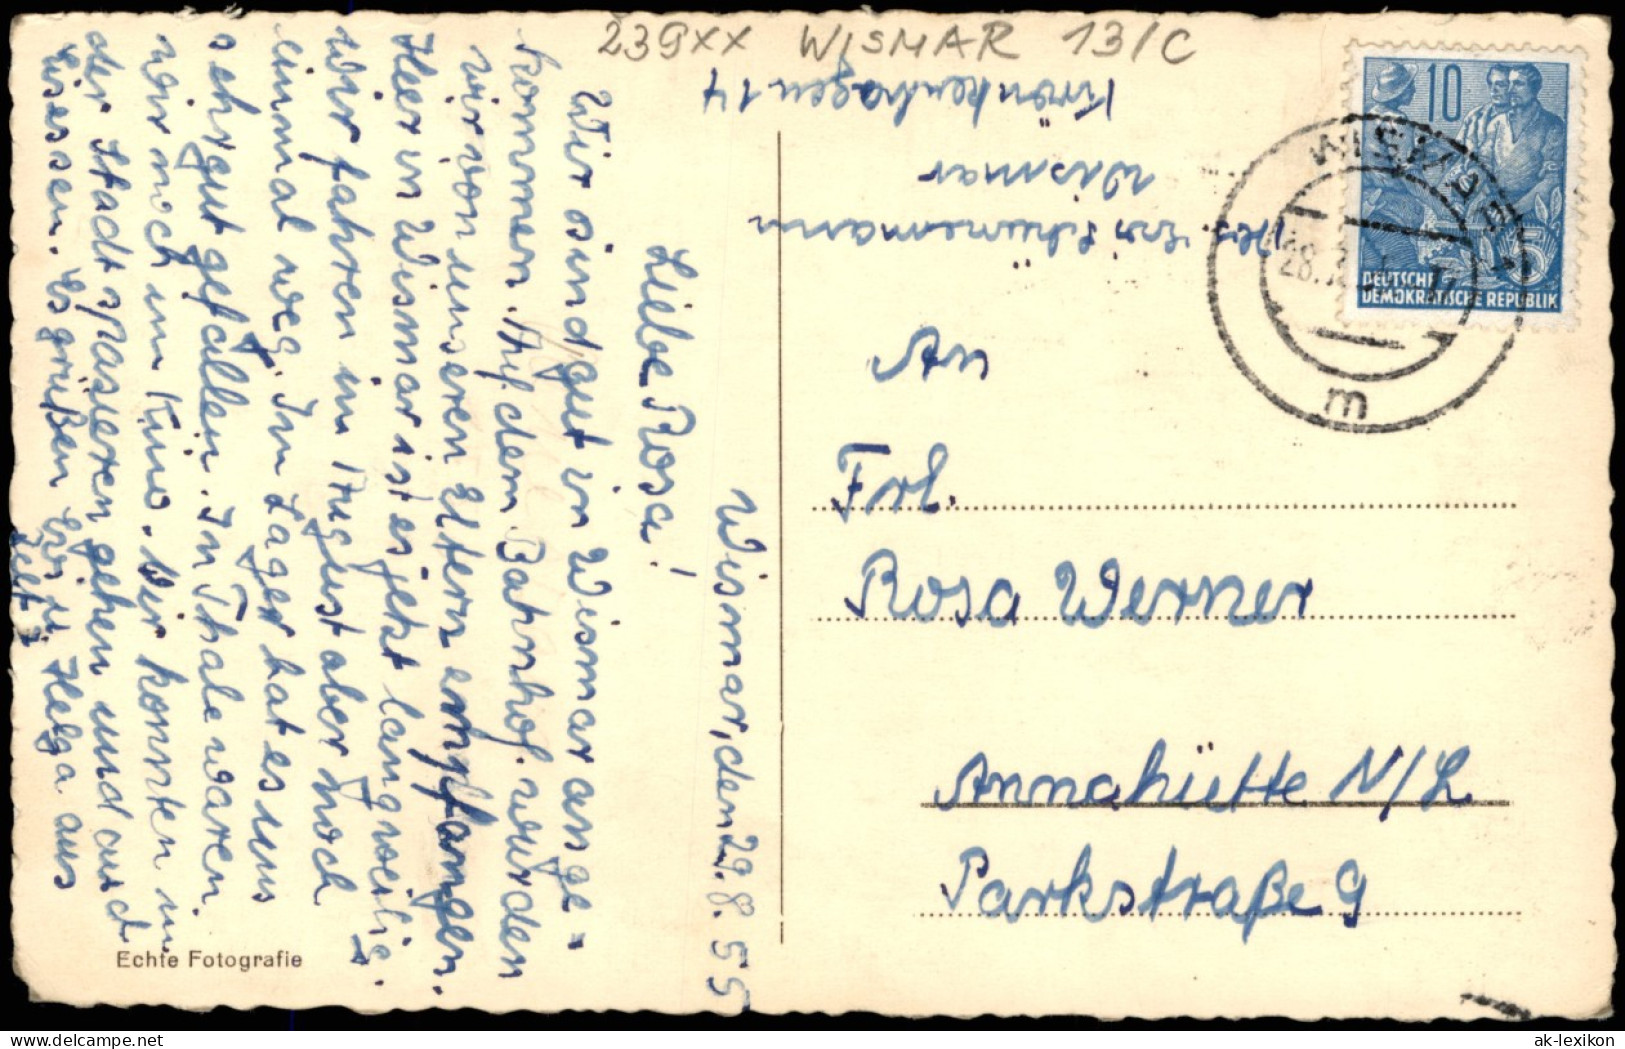 239xx WISMAR 13/C
Wismar, den 29.8.55
Liebe Rosa!
Wir sind gut in Wismar ange=
kommen. Auf dem Bahnhof wurden
wir von unseren Eltern empfangen.
Hier in Wismar ist es jetzt langweilig.
Wir fahren im August aber noch
einmal weg. Im Lager hat es uns
sehr gut gefallen. In Thale waren
wir noch im Kino. Wir konnten in
der Stadt spazieren gehen und auch
Eisessen. Es grüßen Helga aus
Zelt 7
Abs
Wismar
Krönkenhagen 14
10
WISMAR
28.
m
5
DEUTSCHE
DEMOKRATISCHE REPUBLIK
An
Frl.
Rosa Werner
Annahütte N/L
Parkstraße 9
Echte Fotografie
ak-lexikon